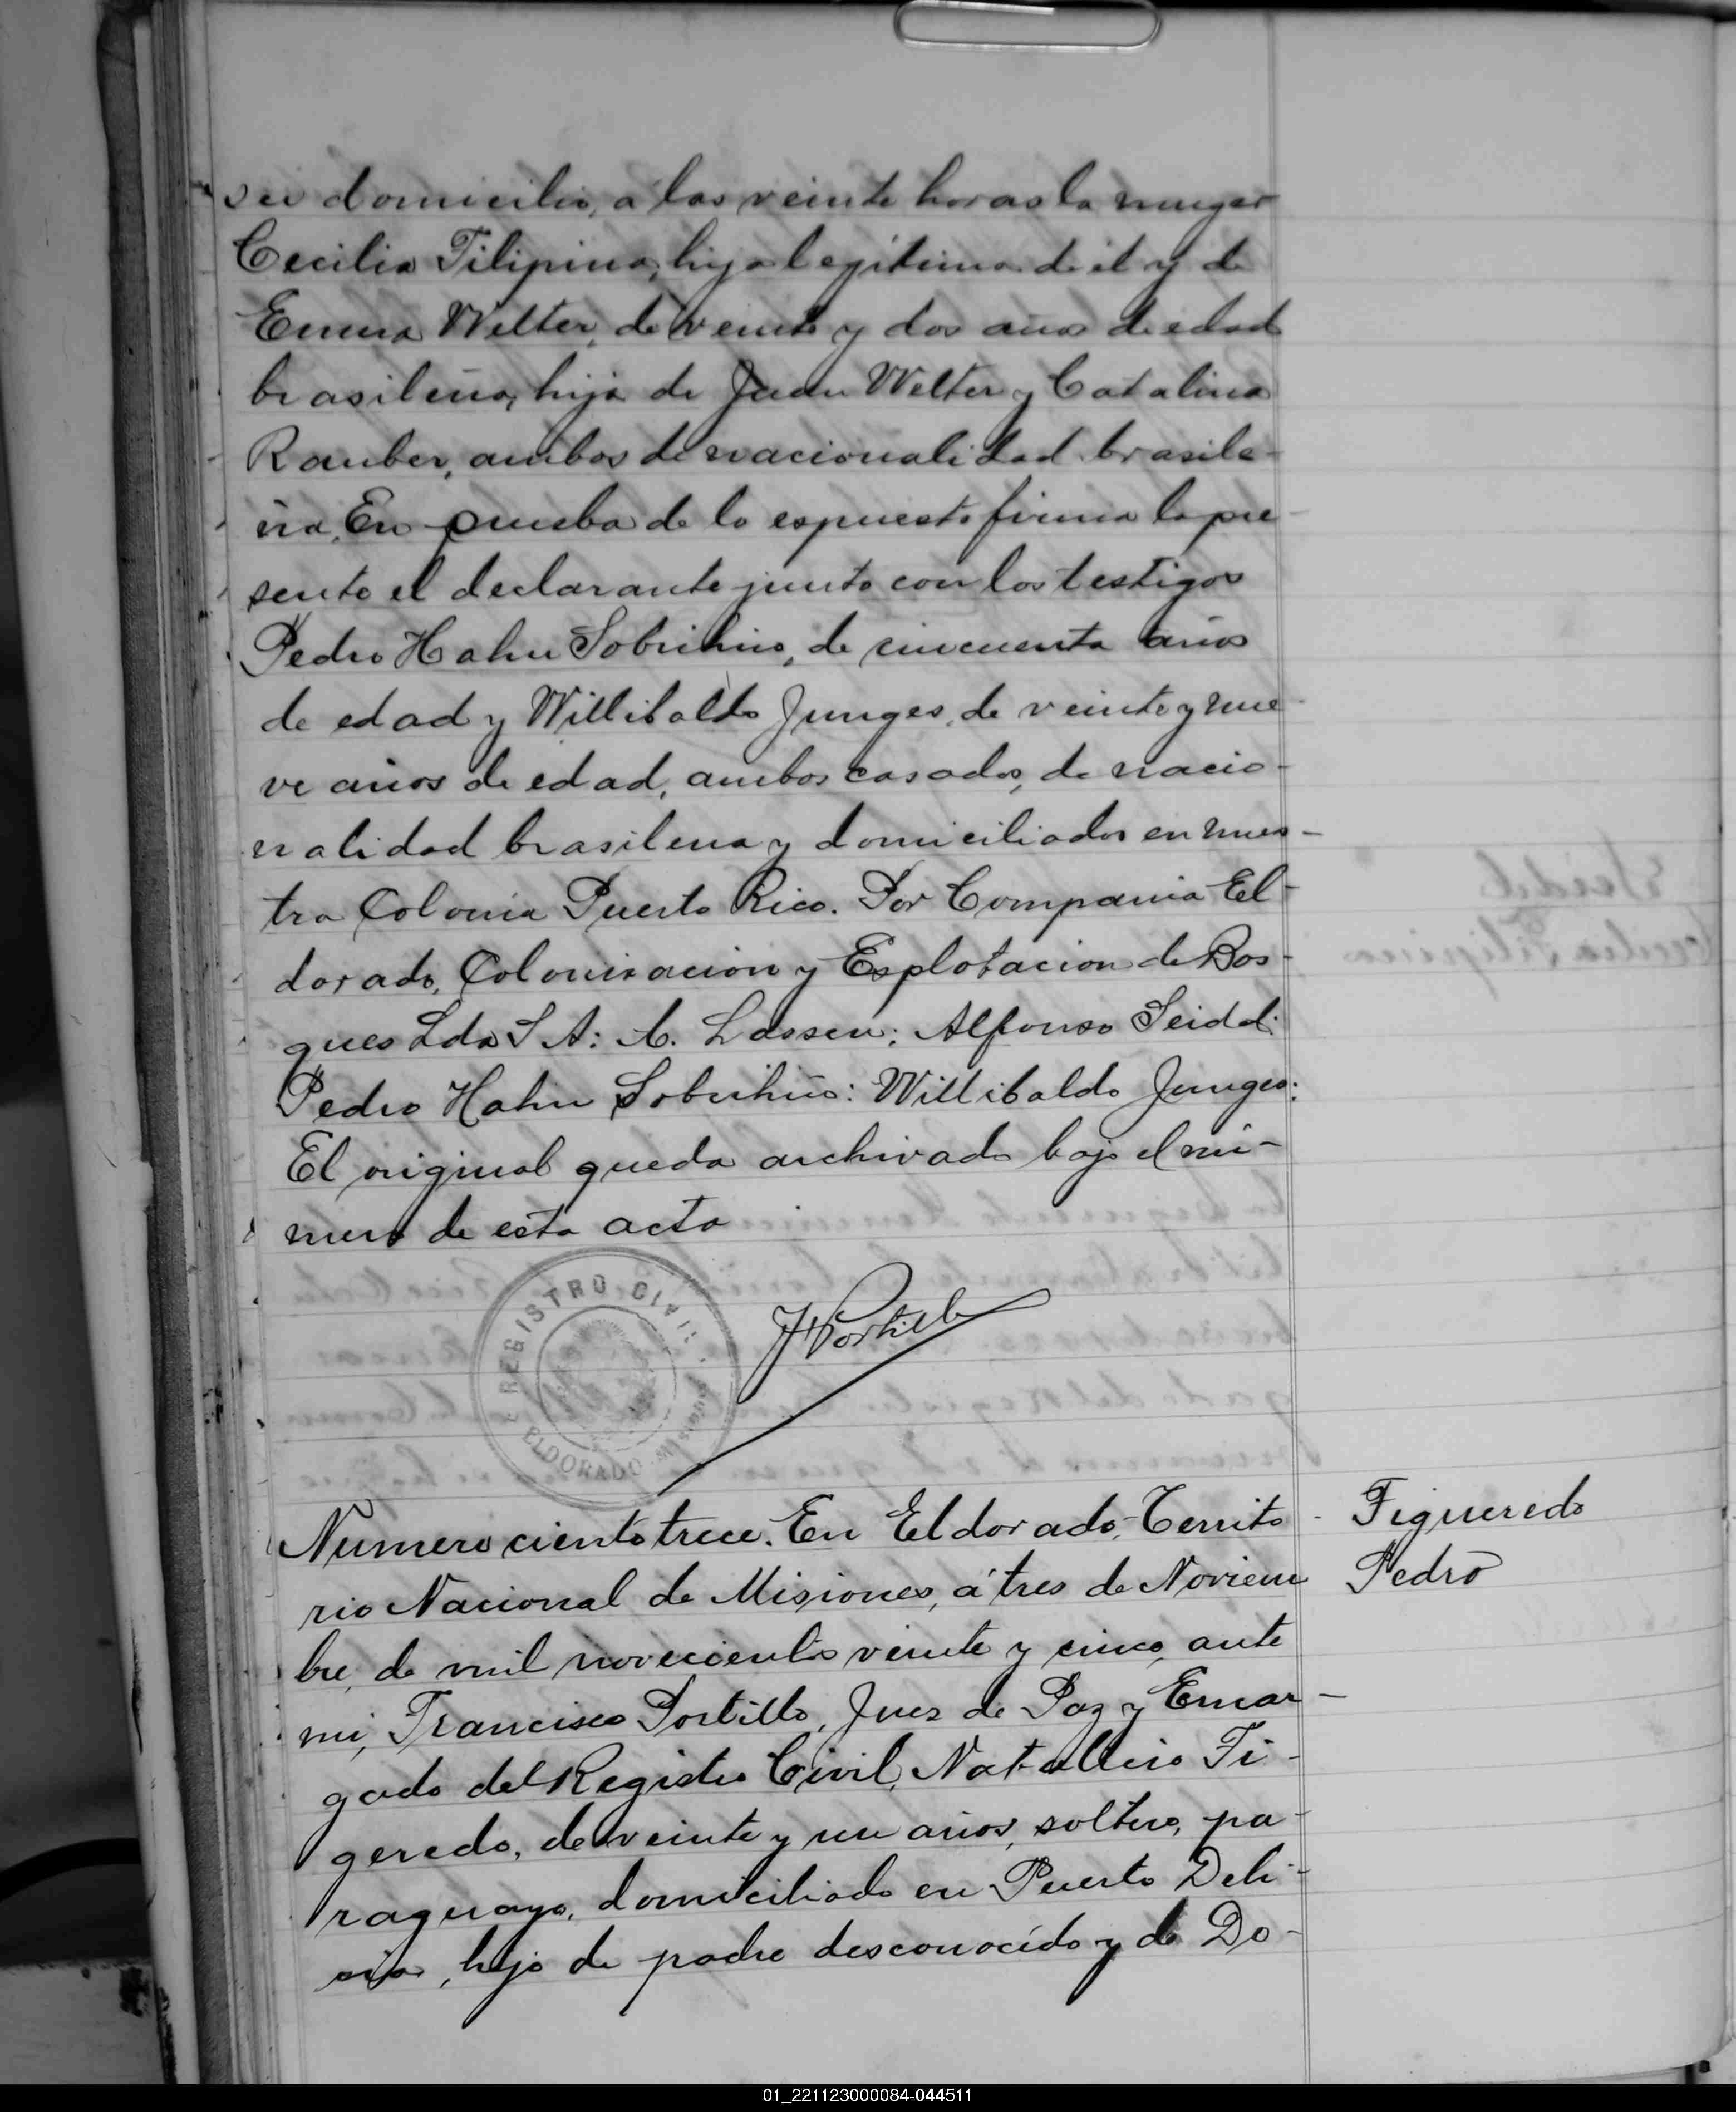 su domicilio, a las veinte horas la muger
Cecilia Filipina, hija legitima de él y de
Emma Welter, de veinte y dos años de edad
brasileña, hija de Juan Welter y Catalina
Rauber, ambos de nacionalidad brasile-
ña. En prueba de lo espuesto firma la pre-
sente el declarante junto con los testigos
Pedro Hahn Sobrinho, de cincuenta años
de edad y Willibaldo Junges, de veinte y nue-
ve años de edad, ambos casados, de nacio-
nalidad brasilena y domiciliados en nues-
tra Colonia Puerto Rico. Por Compania El-
dorado, Colonizacion y Esplotacion de Bos-
ques Lda S A: A. Lassen; Alfonso Seidel:
Pedro Hahn Sobrinho: Willibaldo Junges:
El original queda archivado bajo el nú-
mero de esta acta
REGISTRO CIVIL
ELDORADO
JPortillo
Numero ciento trece. En Eldorado, Territo-
rio Nacional de Misiones, á tres de Noviem
bre, de mil novecientos veinte y cinco, ante
mi, Francisco Portillo, Juez de Paz y Encar-
gado del Registro Civil, Natallicio Fi-
geredo, de veinte y un años, soltero, pa-
raguayo, domiciliado en Puerto Deli-
cia, hijo de padre desconocido y de Do-
Figueredo
Pedro
01_221123000084-044511